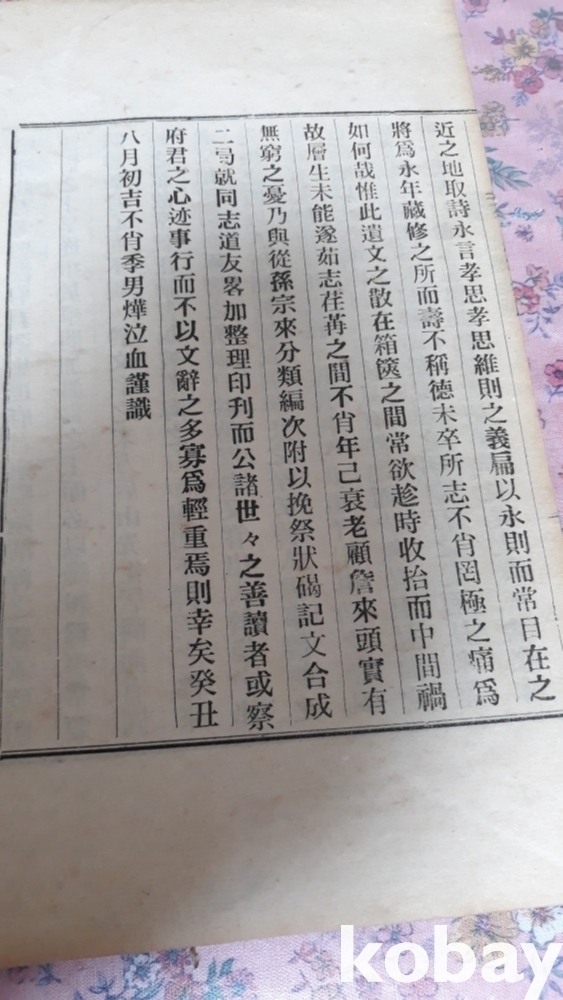 近之地取詩永言孝思孝思維則之義扁以永則而常目在之
將爲永年藏修之所而壽不稱德未卒所志不肖罔極之痛爲
如何哉惟此遺文之散在箱篋之間常欲趁時收拾而中間禍
故層生未能遂茹志荏苒之間不肖年已衰老顧詹來頭實有
無窮之憂乃與從孫宗來分類編次附以挽祭狀碣記文合成
二弓就同志道友畧加整理印刊而公諸世々之善讀者或察
府君之心迹事行而不以文辭之多寡爲輕重焉則幸矣癸丑
八月初吉不肖季男燁泣血謹識
kobay